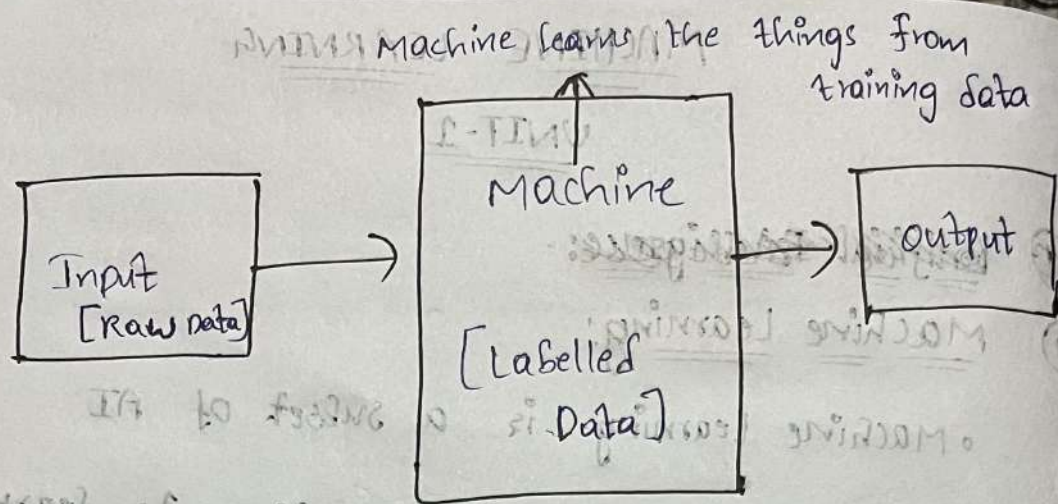 Machine learns the things from
training data
Machine
Input
[Raw Data]
[Labelled
Data]
Output